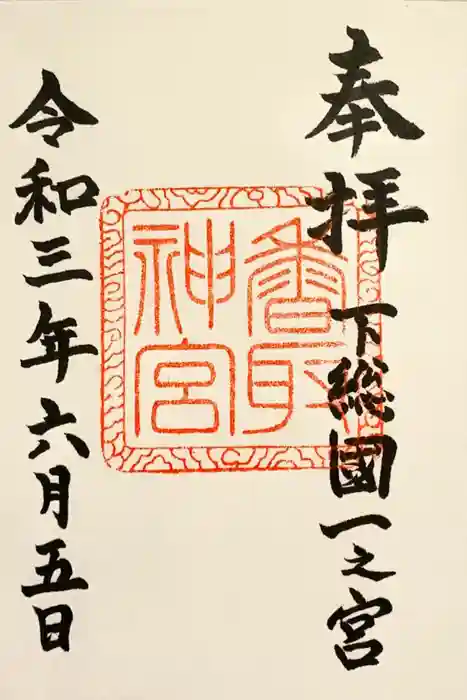 奉拝 下総國一之宮
香取
神宮
令和三年六月五日